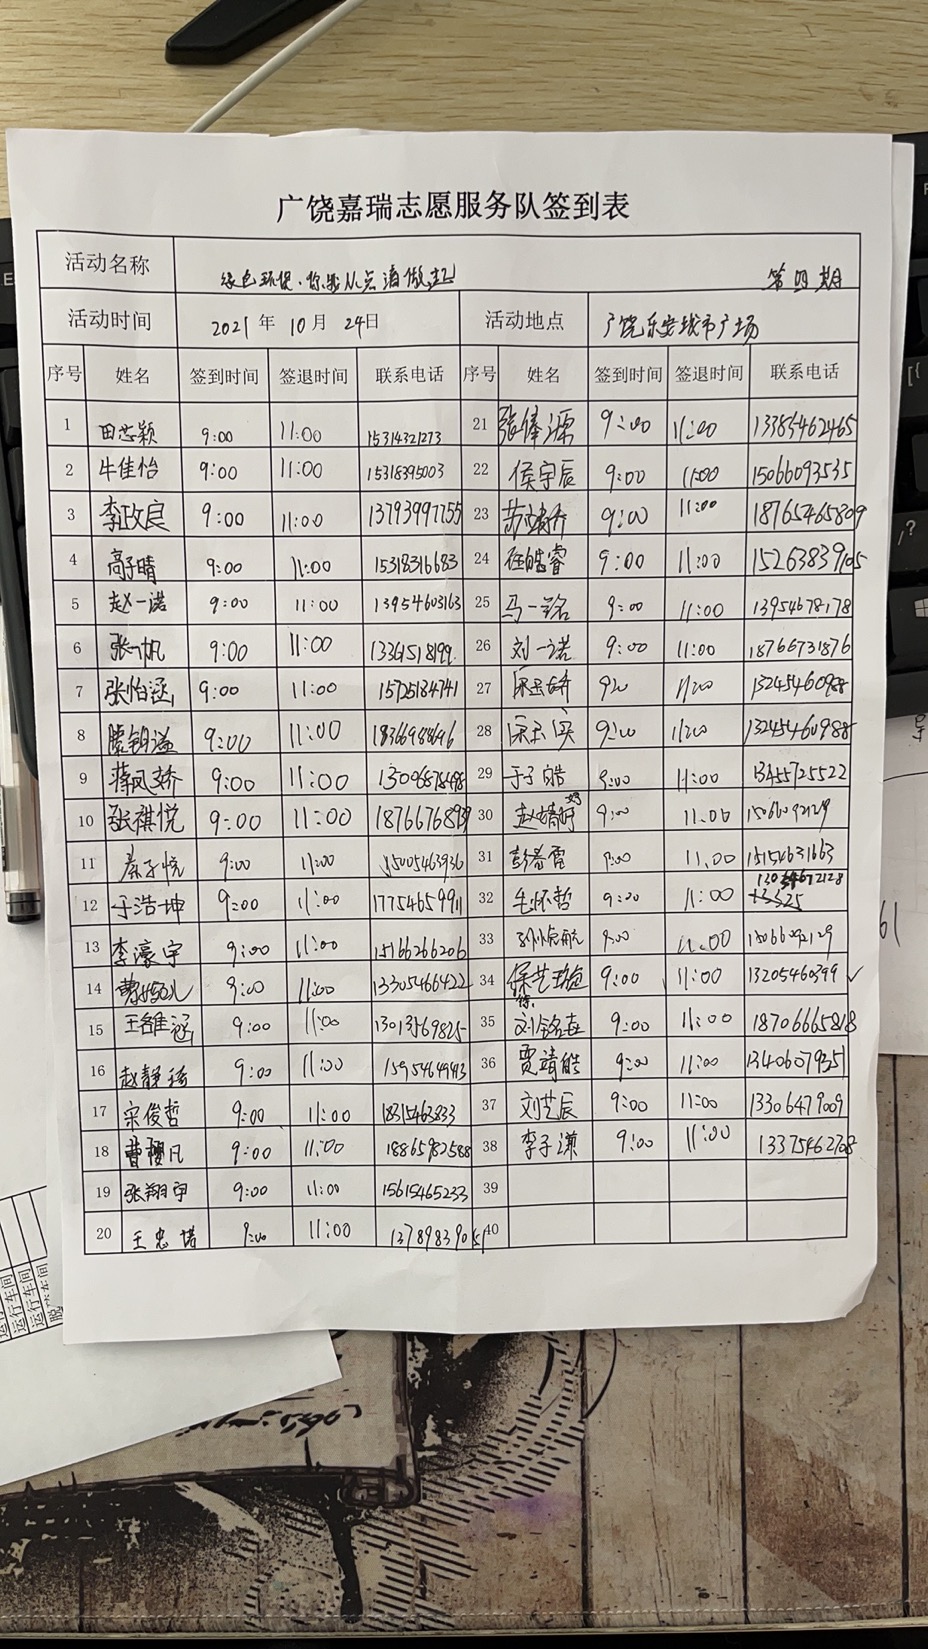 广饶嘉瑞志愿服务队签到表
活动名称 绿色环保·你我从点滴做起 第四期
活动时间 2021 年 10 月 24日 活动地点 广饶乐安城市广场
序号 姓名 签到时间 签退时间 联系电话 序号 姓名 签到时间 签退时间 联系电话
1 田芯颖 9:00 11:00 15314321273 21 张俸源 9:00 11:00 13385462465
2 牛佳怡 9:00 11:00 15318395003 22 侯宇辰 9:00 11:00 15066093535
3 李政良 9:00 11:00 13793997755 23 9:00 11:00 18765465809
4 高子晴 9:00 11:00 15318316683 24 任皓睿 9:00 11:00 15263839105
5 赵一诺 9:00 11:00 13954603163 25 马一铭 9:00 11:00 13954678178
6 张一帆 9:00 11:00 13361518199 26 刘一诺 9:00 11:00 18766731876
7 张怡涵 9:00 11:00 15725134741 27 9:00 11:00 13245460988
8 滕钥溢 9:00 11:00 18366988696 28 9:00 11:00 13245460988
9 蒋凤娇 9:00 11:00 29 于子皓 9:00 11:00 13455725522
10 张祺悦 9:00 11:00 18766768939 30 赵婧妤 9:00 11:00 15066092129
11 秦子悦 9:00 11:00 15005463936 31 彭春雷 9:00 11:00 15154631663
12 于浩坤 9:00 11:00 17754659911 32 毛怀哲 9:00 11:00
13 李濠宇 9:00 11:00 15166266206 33 孙航 9:00 11:00 15066092129
14 9:00 11:00 13305466422 34 9:00 11:00 13205460399 ✓
15 王维涵 9:00 11:00 13013569825 35 刘铭垚 9:00 11:00 18706665818
16 赵静瑶 9:00 11:00 15954649493 36 贾靖皓 9:00 11:00 13406079351
17 宋俊哲 9:00 11:00 18315463833 37 刘艺辰 9:00 11:00 13306479009
18 曹樱凡 9:00 11:00 18865982588 38 李子谦 9:00 11:00 13375462708
19 张翔宇 9:00 11:00 15615465233 39
20 王忠诺 9:00 11:00 13789839051 40
运行车间
运行车间
运行车间